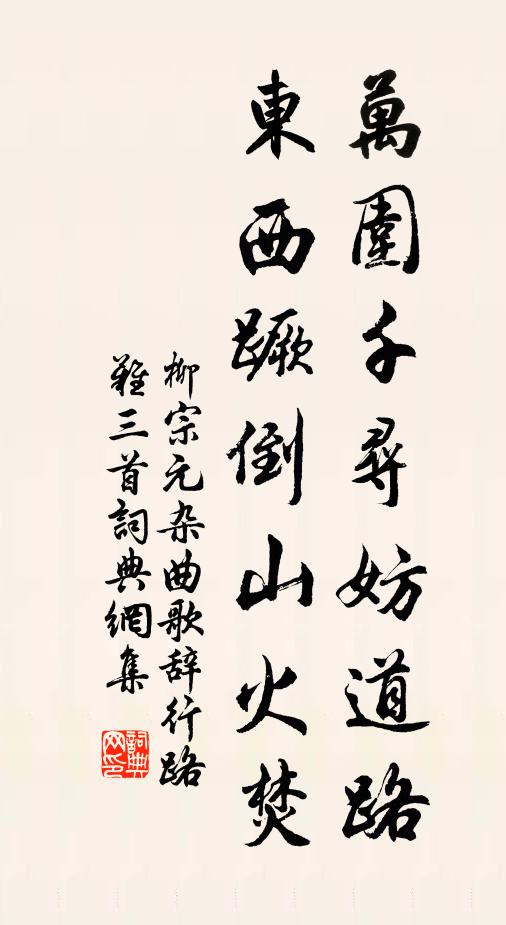 萬圍千尋妨道路
東西蹶倒山火焚
柳宗元杂曲歌辞行路
難三首詞典網集
詞典网印